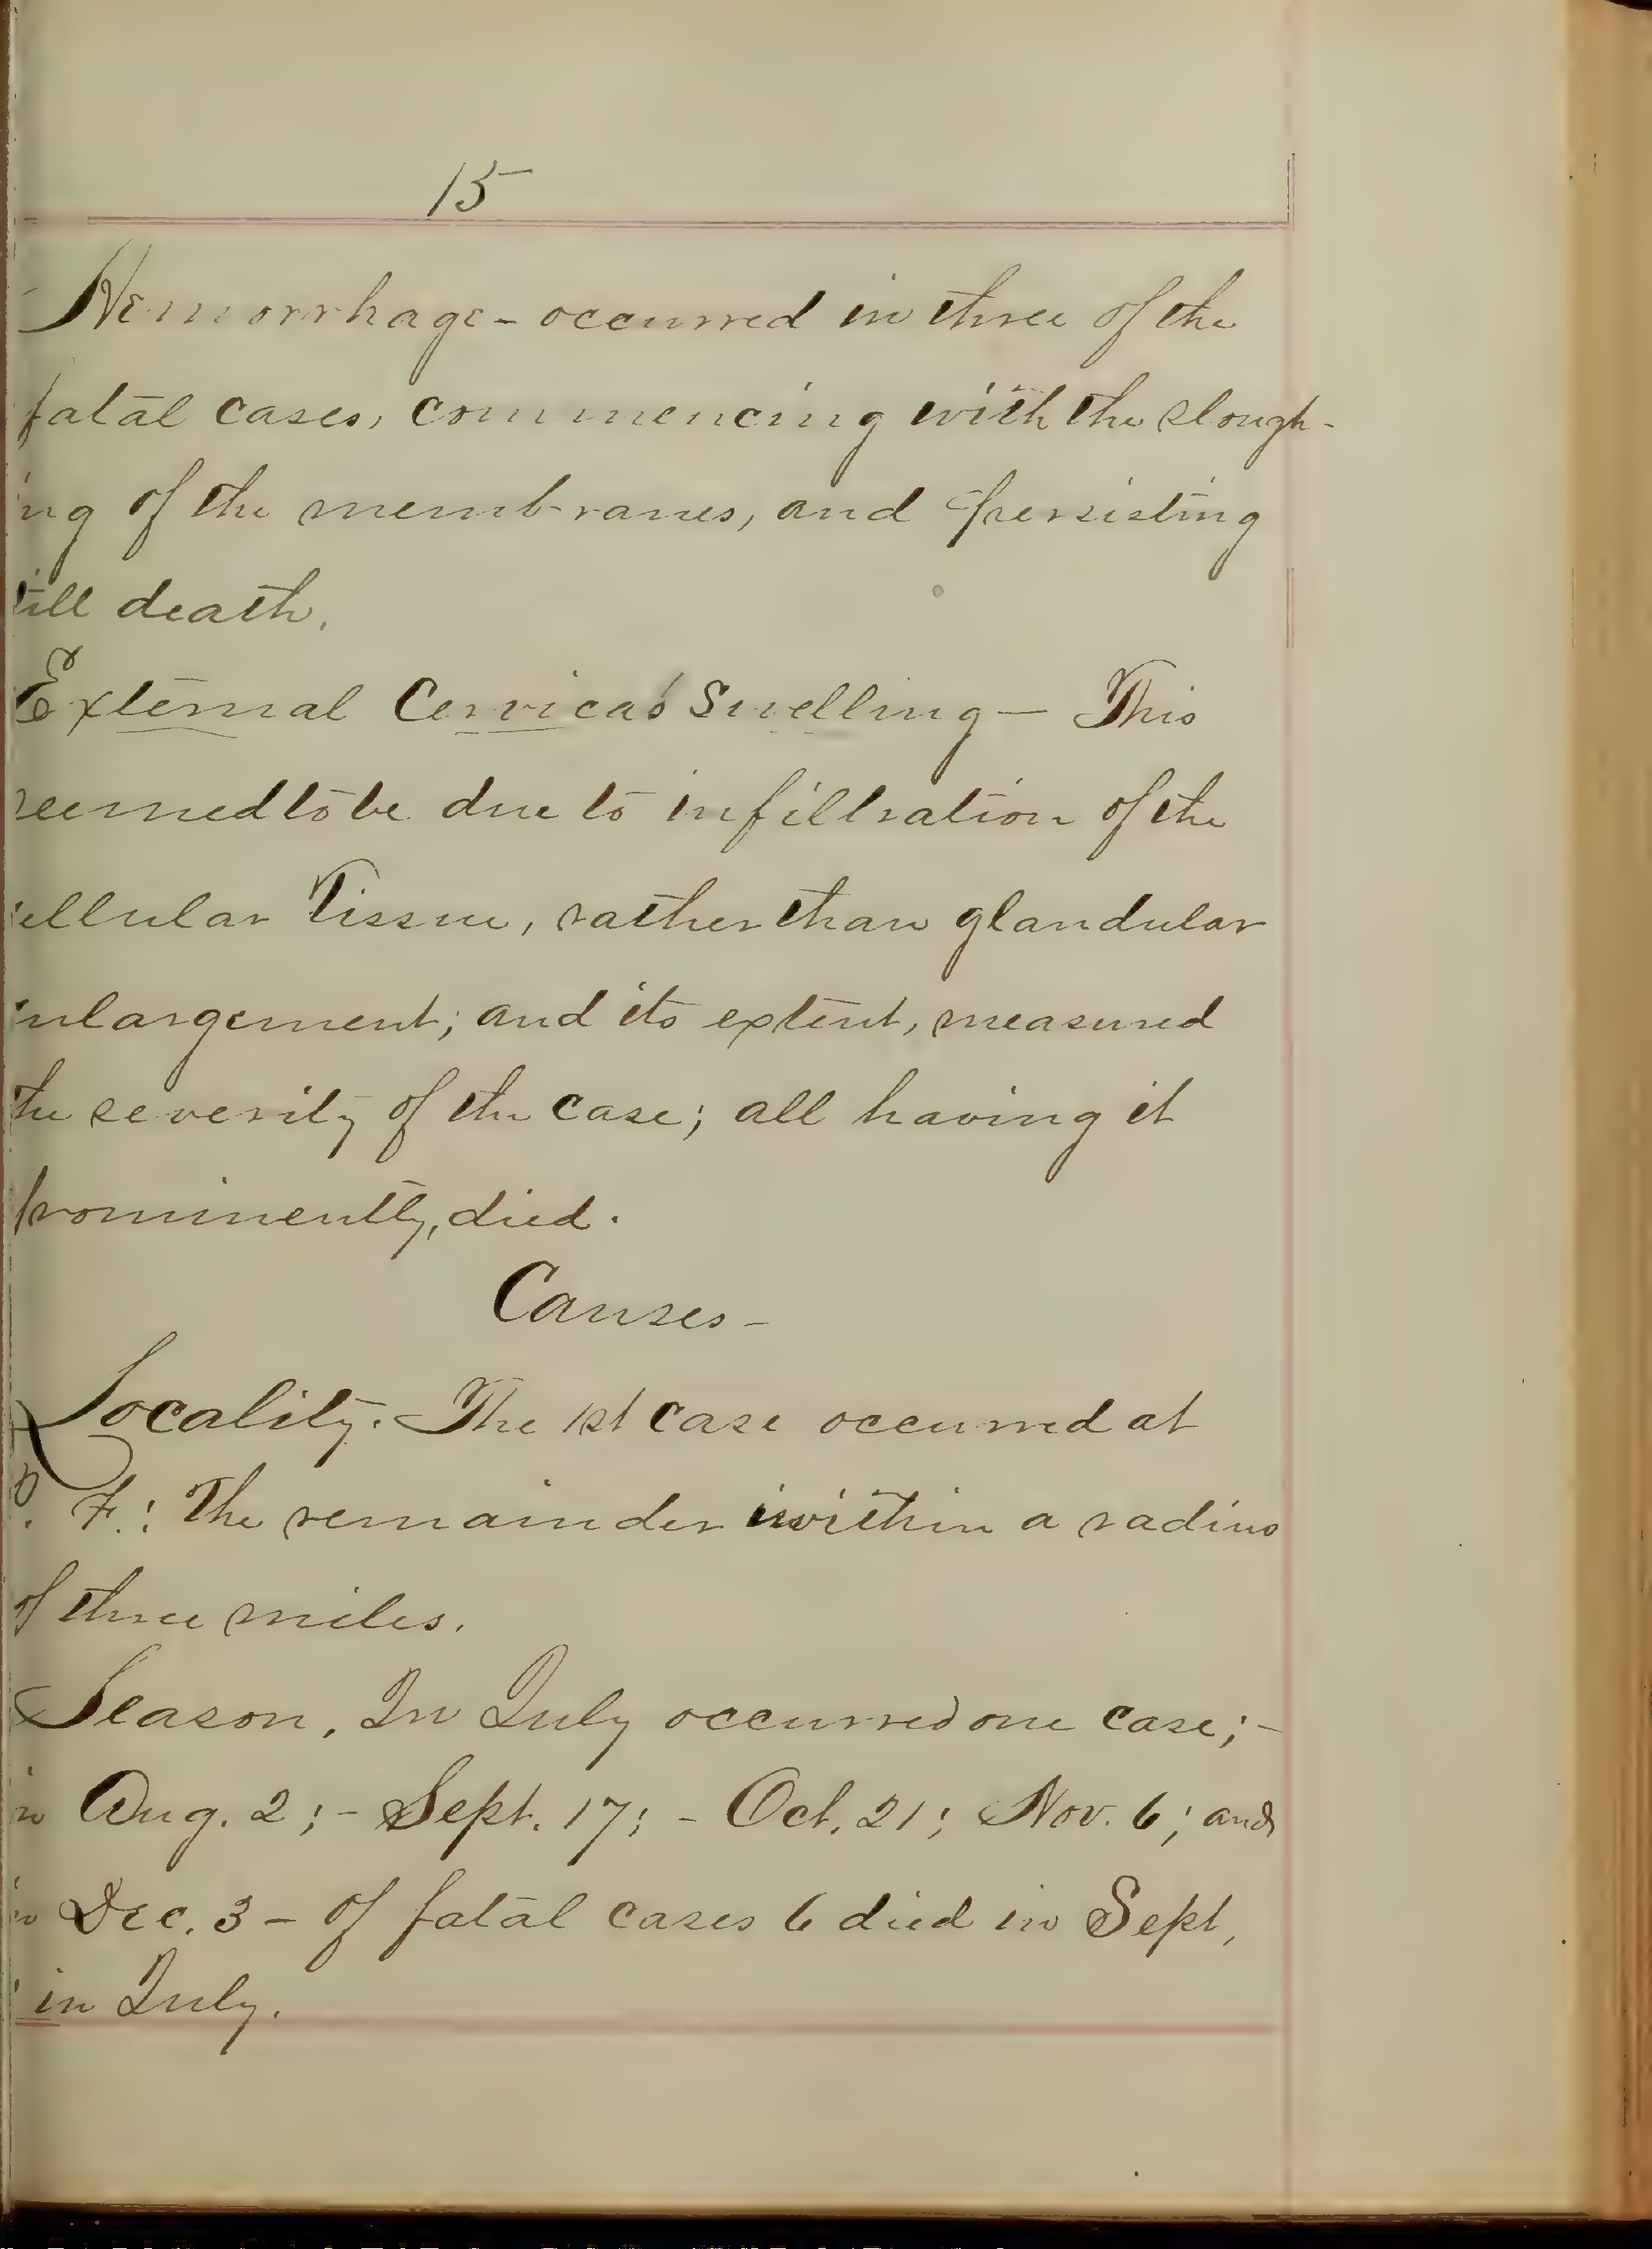 15
Hemorrhage - occurred in three of the
fatal cases, commencing with the slough-
ing of the membranes, and persisting
till death.
External Cervical Swelling — This
seemed to be due to infiltration of the
cellular Tissue, rather than glandular
enlargement; and its extent, measured
the severity of the case; all having it
prominently, died.
Causes -
Locality. - The 1st case occurred at
F.: The remainder within a radius
of three miles.
Season. In July occurred one case; -
in Aug. 2; - Sept. 17; - Oct. 21; Nov. 6; and
in Dec. 3 - of fatal cases 6 died in Sept,
in July.